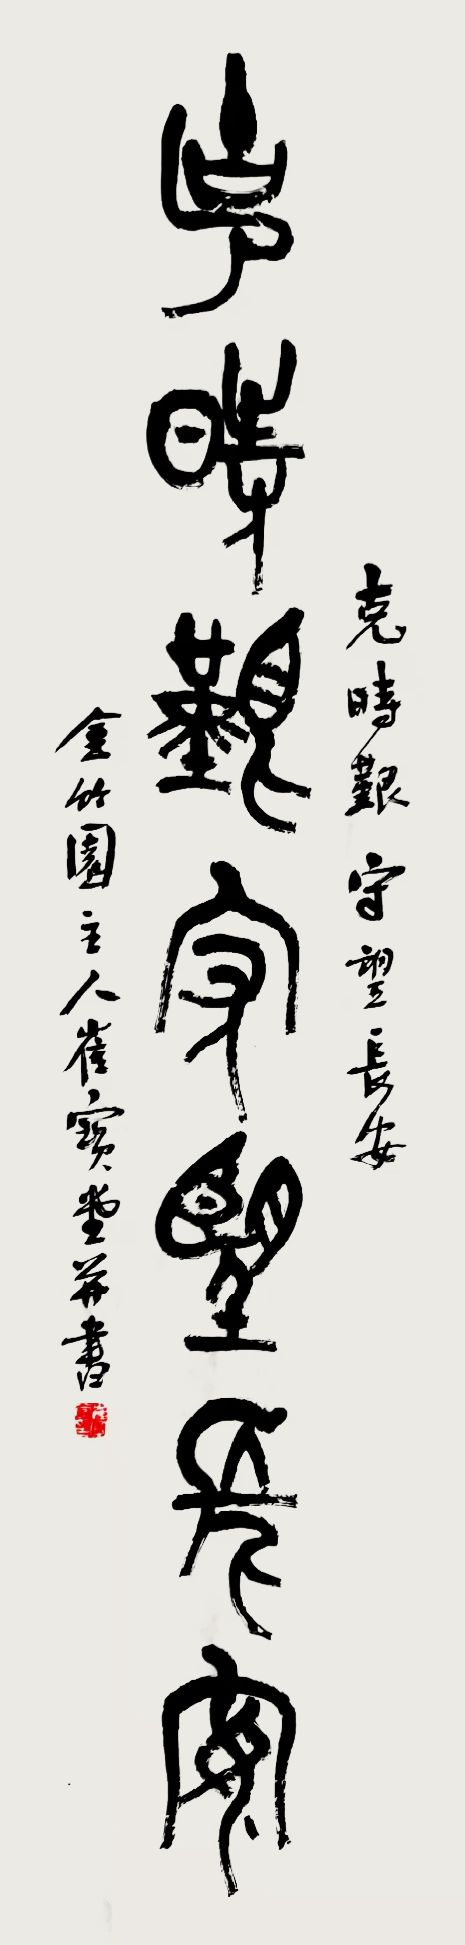 克時艱 守望長安
克時艱守望長安
金竹園主人崔寶堂并書